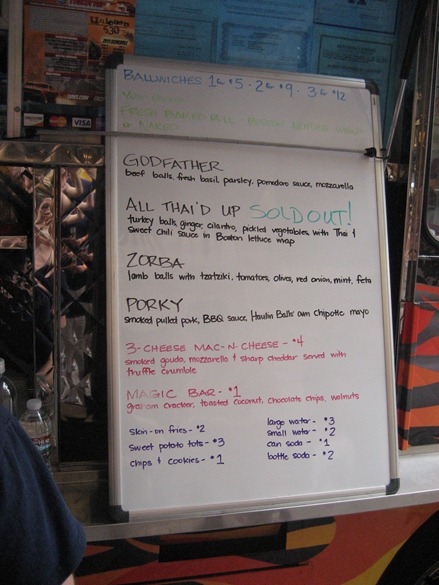 BALLWICHES 1 for $5 - 2 for $9 - 3 for $12
FRESH BAKED ROLL - BOSTON LETTUCE WRAP
or NAKED
GODFATHER
beef balls, fresh basil, parsley, pomodoro sauce, mozzarella
ALL THAI'D UP SOLD OUT!
turkey balls, ginger, cilantro, pickled vegetables, with Thai +
sweet chili sauce in Boston lettuce wrap
ZORBA
lamb balls with tzatziki, tomatoes, olives, red onion, mint, feta
PORKY
smoked pulled pork, BBQ sauce, Haulin Balls' own chipotle mayo
3-CHEESE MAC-N-CHEESE - $4
smoked gouda, mozzarella + sharp cheddar served with
truffle crumble
MAGIC BAR - $1
graham cracker, toasted coconut, chocolate chips, walnuts
skin-on fries - $2
sweet potato tots - $3
chips + cookies - $1
large water - $3
small water - $2
can soda - $1
bottle soda - $2
VISA